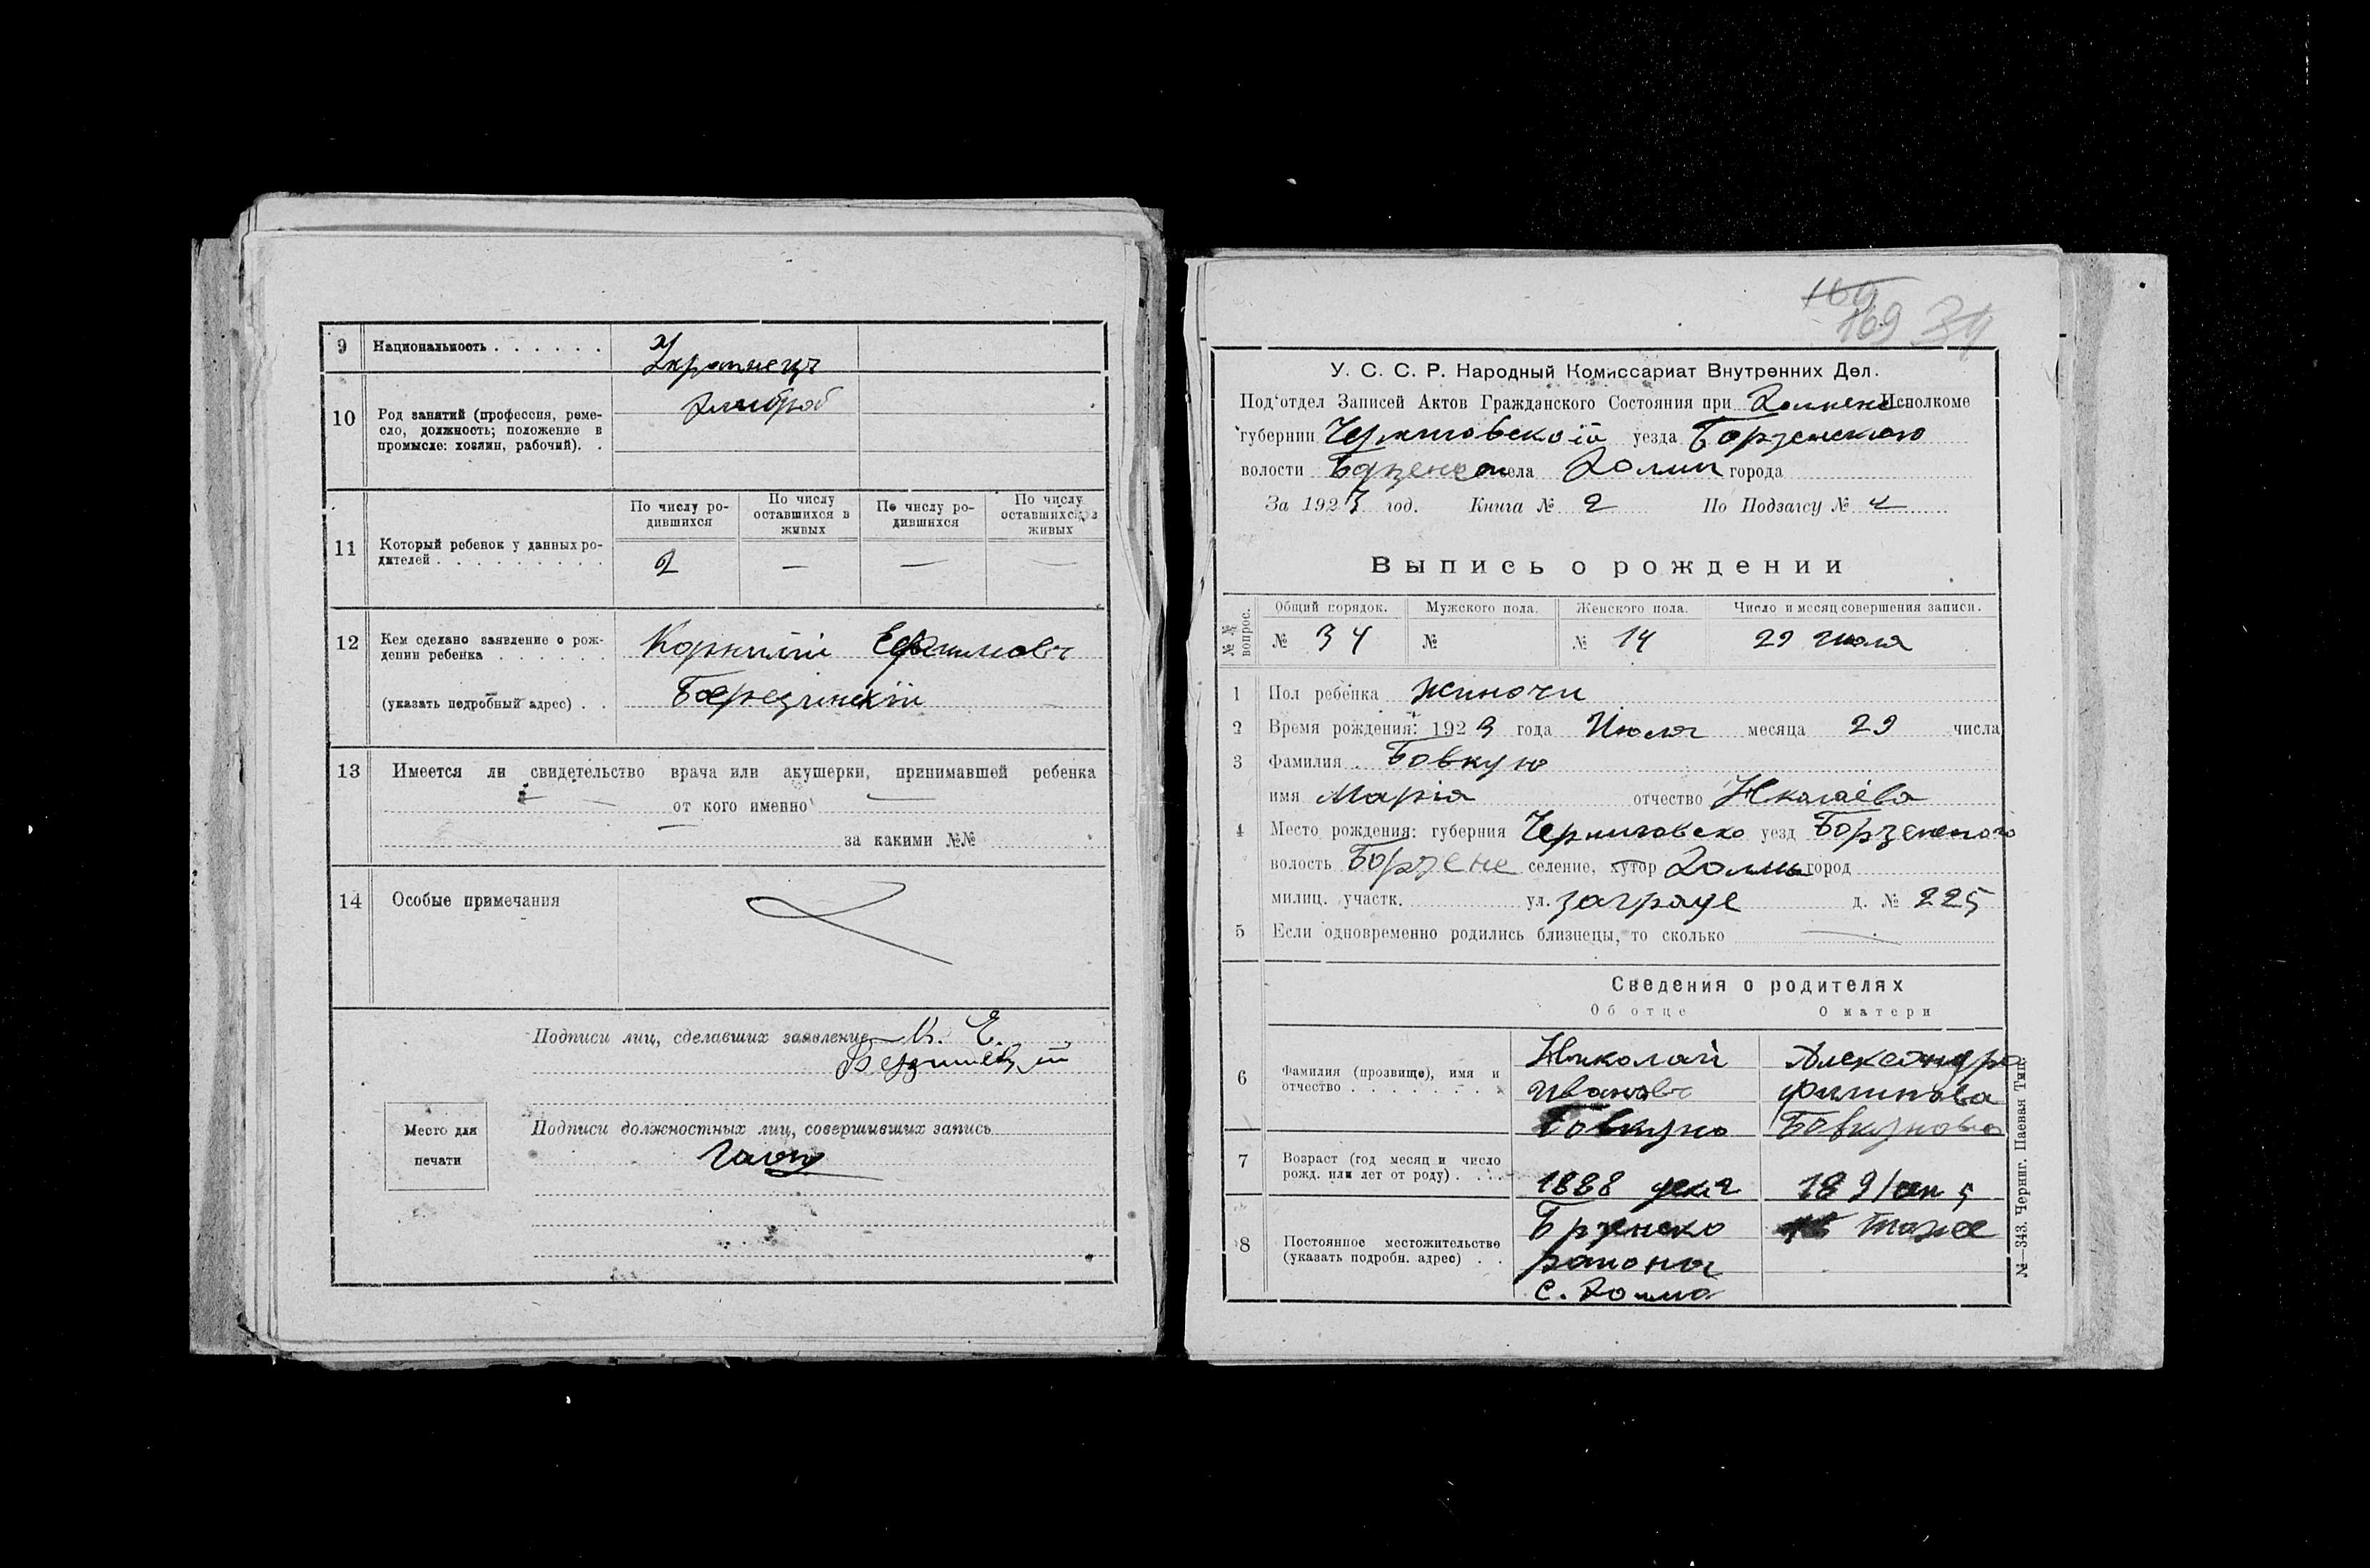 9 Национальность . . . . . . Украинец
10 Род занятий (профессия, реме-
сло, должность; положение в
промысле: хозяин, рабочий). . хлибороб
11 Который ребенок у данных ро-
дителей . . . . . . . . . .
По числу ро-
дившихся
По числу
оставшихся в
живых
По числу ро-
дившихся
По числу
оставшихся в
живых
2 — — —
12 Кем сделано заявление о рож-
дении ребенка . . . . . . Корнилій Ефимовъ
(указать подробный адрес) . .
13 Имеется ли свидетельство врача или акушерки, принимавшей ребенка
— от кого именно —
— за какими №№
14 Особые примечания
Подписи лиц, сделавших заявление К. Е.
Подписи должностных лиц, совершивших запись
Место для
печати
169
169 34
У. С. С. Р. Народный Комиссариат Внутренних Дел.
Под‘отдел Записей Актов Гражданского Состояния при Исполкоме
губернии Черниговской уезда Борзенского
волости села города
За 1923 год. Книга № 2 По Подзагсу № 4
Выпись о рождении
№№ вопрос.
Общий порядок. Мужского пола. Женского пола. Число и месяц совершения записи.
№ 34 № № 14 29 июля
1 Пол ребенка жиночи
2 Время рождения: 1923 года Июля месяца 29 числа
3 Фамилия . Бовкую
имя Марія отчество Нколаёва
4 Место рождения: губерния Черниговско уезд Борзенского
волость Борзене селение, хутор город
милиц. участк. ул. д. № 225
5 Если одновременно родились близнецы, то сколько —
Сведения о родителях
Об отце О матери
6 Фамилия (прозвище), имя и
отчество . . . . . . . .
Николай
Ивановъ
Бовкуно
Александра
Филипова
Бовкунова
7 Возраст (год месяц и число
рожд. или лет от роду) . . . .
1888 дек 2
8 Постоянное местожительство
(указать подробн. адрес) . .
Брзенско
раиона
тоже
№—343. Черниг. Паевая Тип.